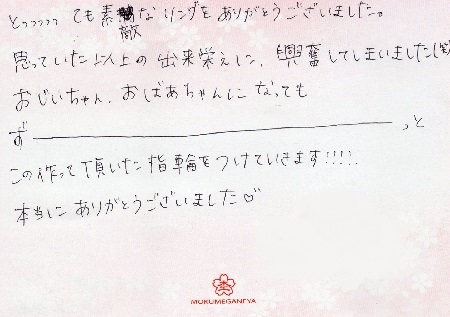 とっっっっっても素敵なリングをありがとうございました。
思っていた以上の出来栄えに、興奮してしまいました(笑)
おじいちゃん、おばあちゃんになっても
ず――――――――――っと
この作って頂いた指輪をつけていきます!!!!
本当にありがとうございました♡
MOKUMEGANEYA